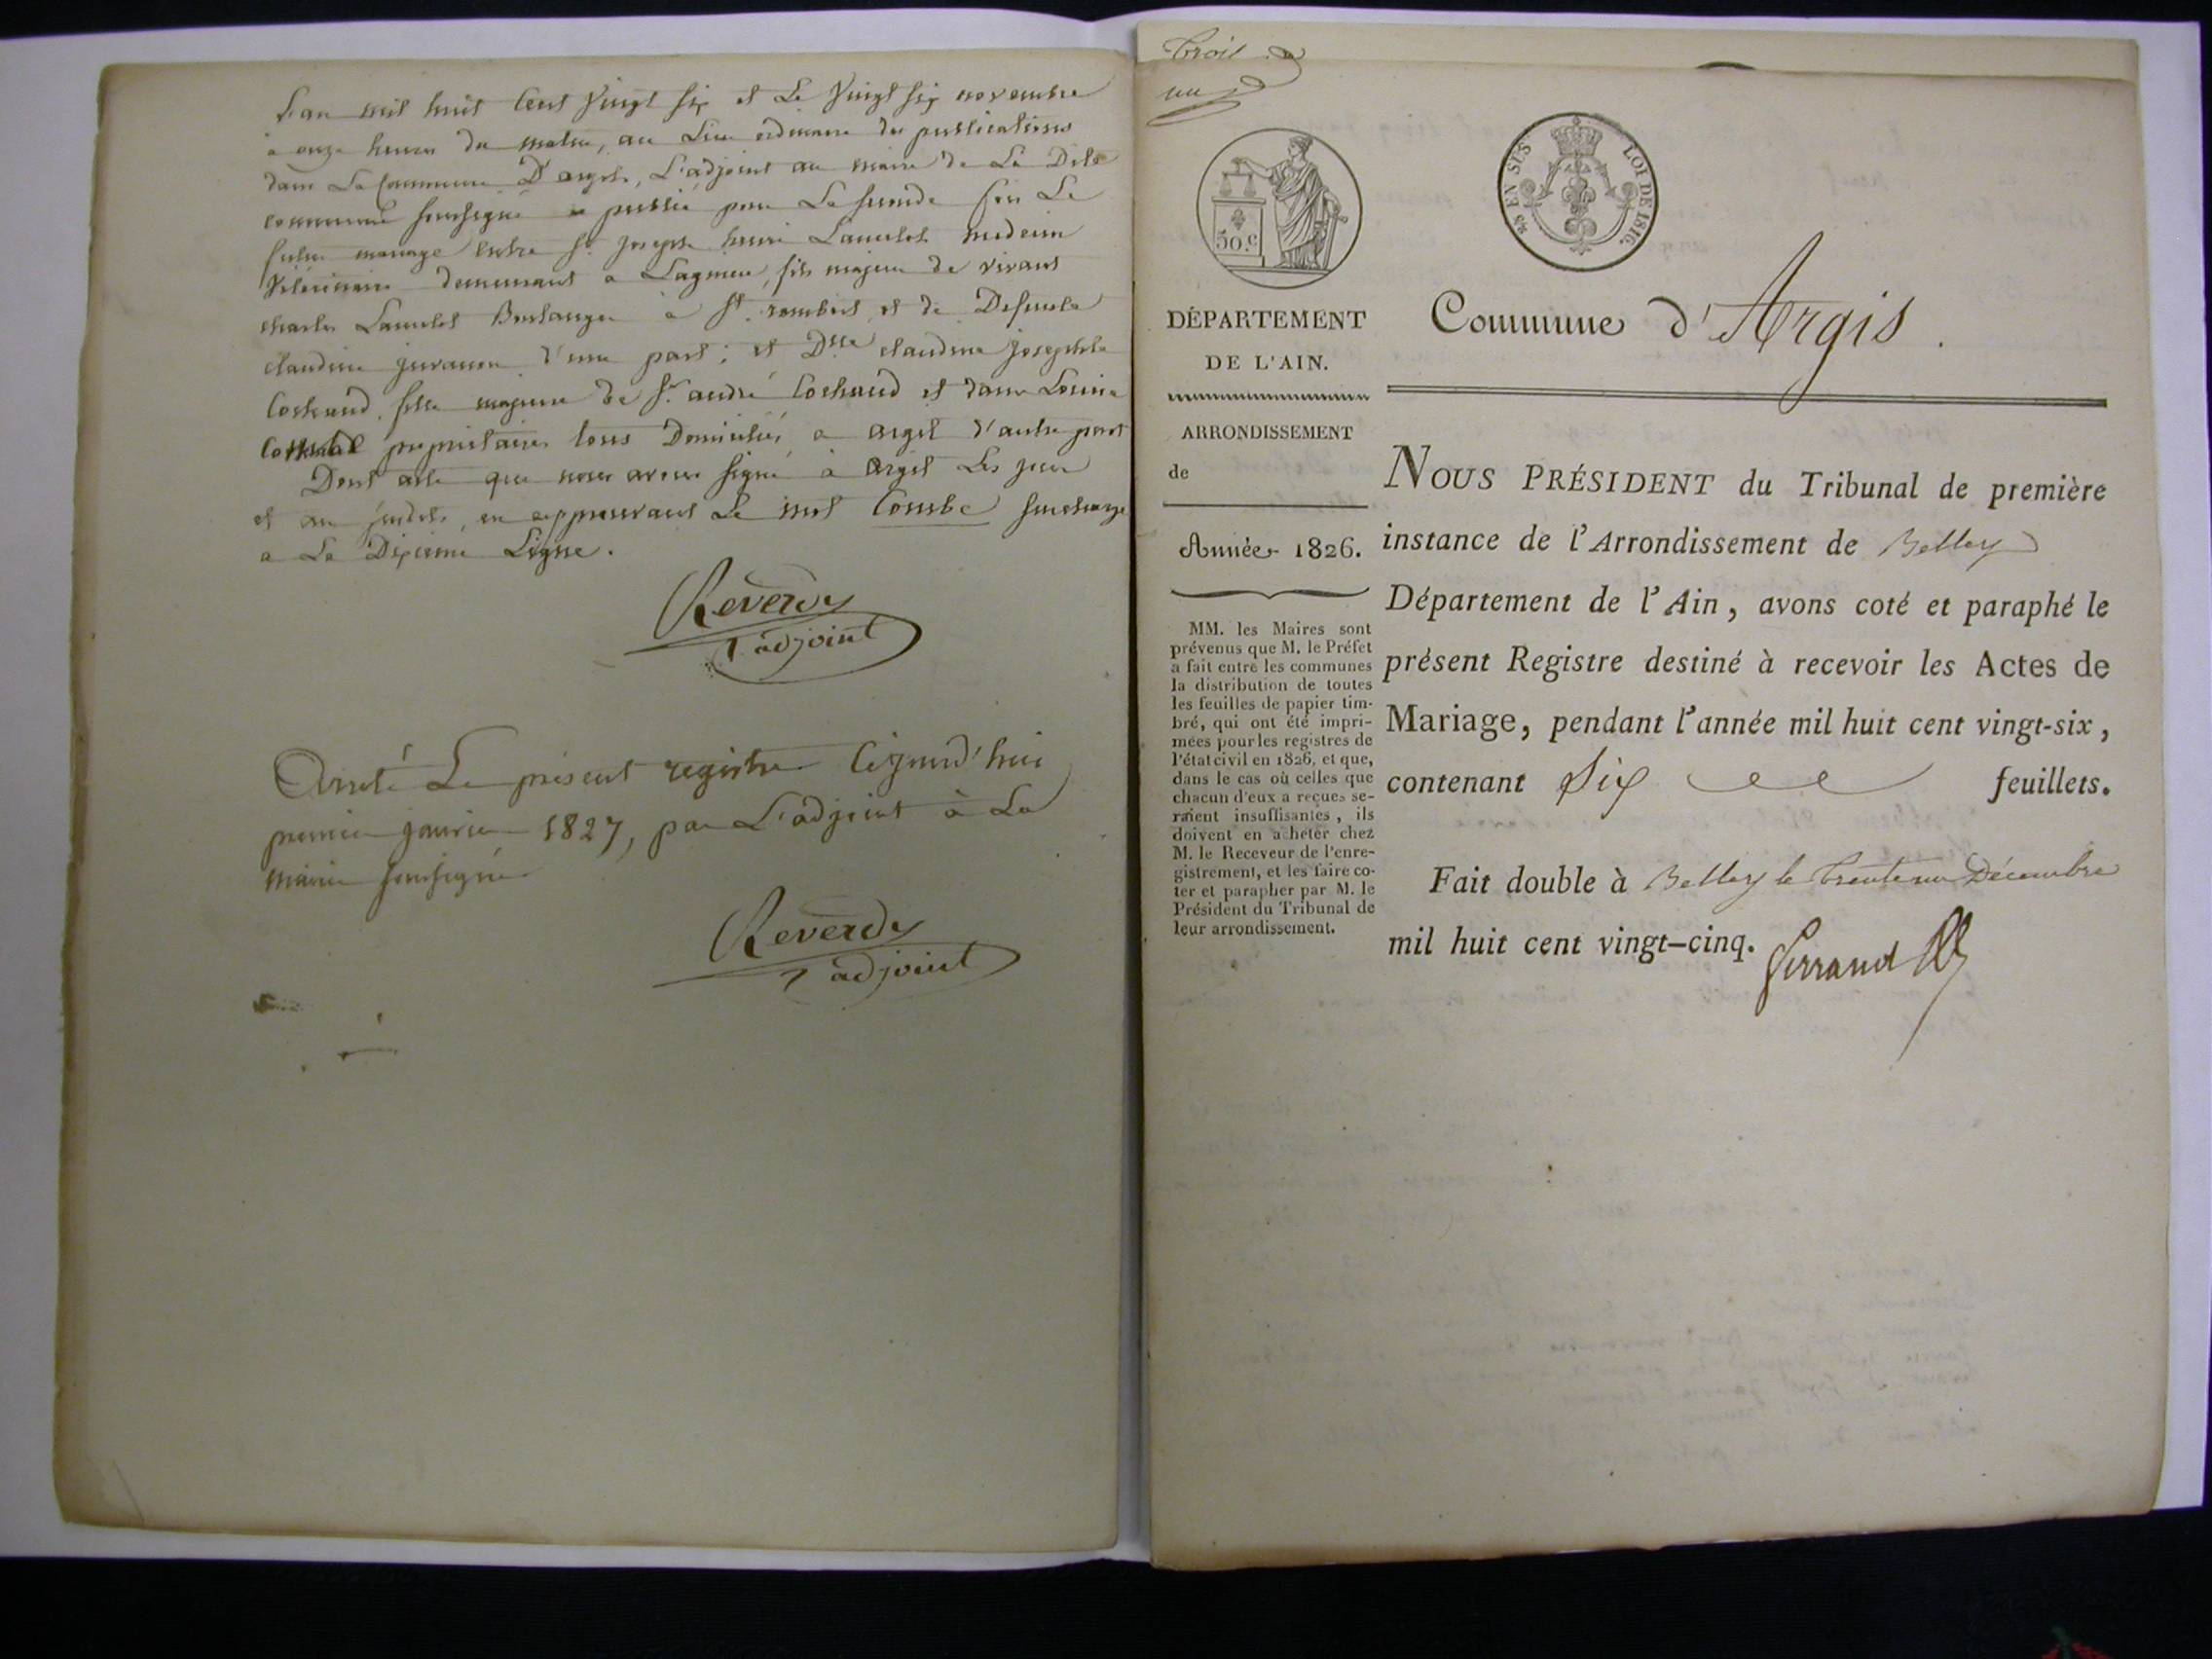 L'an mil huit Cent Vingt six et Le Vingt six novembre
à onze heures du matin, au Lieu ordinaire des publications
dans La Commune D'argis, L'adjoint au maire de La Dite
commune soussigné a publié pour La seconde fois Le
futur mariage entre Sr. joseph henri Lancelot medecin
Vétérinaire demeurant a Lagnieu, fils majeur de vivant
charles Lancelot Boulanger à St. rambert et de Defunte
claudine d'une part; et Dlle claudine josephte
Cochaud, fille majeure de Sr. andré Cochaud et dame Louise
Combe propriétaires tous Domiciliés a argis d'autre part
Dont acte que nous avons signé à Argis Les jour
et an susdits, en approuvant Le mot Combe surchargé
a La Dixieme Ligne.
Reverdy
adjoint
Arreté Le présent registre Cejourd'hui
premier janvier 1827, par L'adjoint à La
mairie soussigné
Reverdy
adjoint
trois
un
50.c
45 EN SUS
LOI DE 1816.
DÉPARTEMENT
DE L'AIN.
ARRONDISSEMENT
de
Année 1826.
MM. les Maires sont
prévenus que M. le Préfet
a fait entre les communes
la distribution de toutes
les feuilles de papier tim-
bré, qui ont été impri-
mées pour les registres de
l'état civil en 1826, et que,
dans le cas où celles que
chacun d'eux a reçues se-
raient insuffisantes, ils
doivent en acheter chez
M. le Receveur de l'enre-
gistrement, et les faire co-
ter et parapher par M. le
Président du Tribunal de
leur arrondissement.
Commune d'Argis.
NOUS PRÉSIDENT du Tribunal de première
instance de l'Arrondissement de Belley
Département de l'Ain, avons coté et paraphé le
présent Registre destiné à recevoir les Actes de
Mariage, pendant l'année mil huit cent vingt-six,
contenant Six feuillets.
Fait double à Belley le trente un Décembre
mil huit cent vingt-cinq.